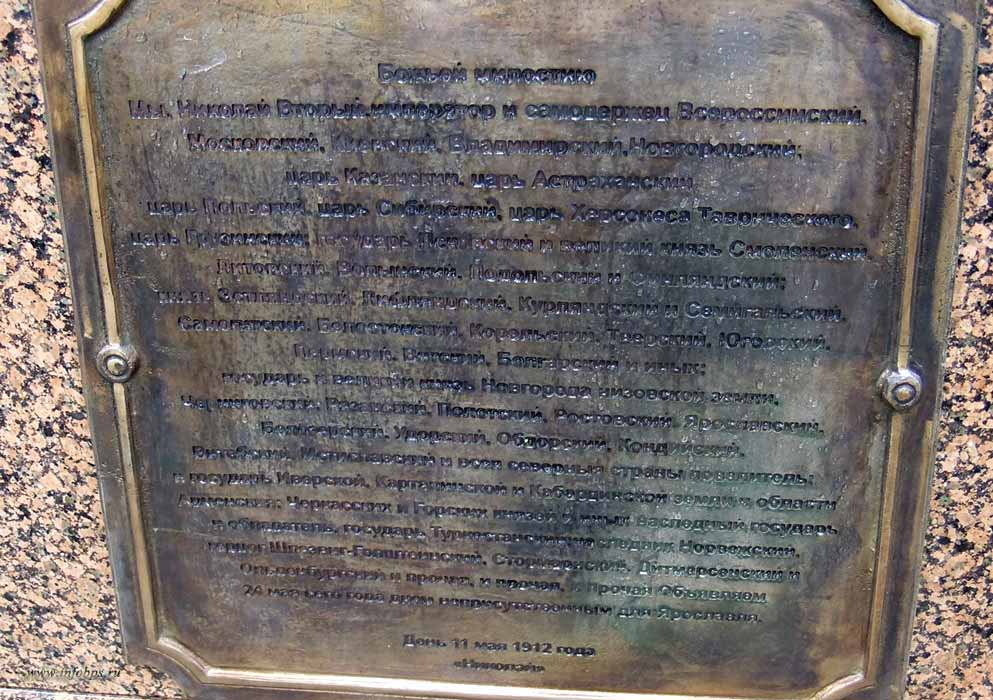 Божьей милостию
Мы, Николай Вторый, император и самодержец Всероссийский,
Московский, Киевский, Владимирский, Новгородский;
царь Казанский, царь Астраханский
царь Польский, царь Сибирский, царь Херсонеса Таврического,
царь Грузинский; государь Псковский и великий князь Смоленский
Литовский, Волынский, Подольский и Финляндский;
князь Эстляндский, Лифляндский, Курляндский и Семигальский,
Самогитский, Белостокский, Корельский, Тверский, Югорский,
Пермский, Вятский, Болгарский и иных;
государь и великий князь Новгорода низовской земли,
Черниговский, Рязанский, Полоцкий, Ростовский, Ярославский,
Белоозерский, Удорский, Обдорский, Кондийский,
Витебский, Мстиславский и всея северныя страны повелитель;
и государь Иверской, Карталинской и Кабардинской земли и области
Арменския; Черкасских и Горских князей и иных наследный государь
и обладатель, государь Туркестанский, наследник Норвежский,
герцог Шлезвиг-Голштейнский, Стормарнский, Дитмарсенский и
Ольденбургский и прочая, и прочая, и прочая Объявляем
24 мая сего года днем неприсутственным для Ярославля.
День 11 мая 1912 года
«Николай»
www.infobps.ru